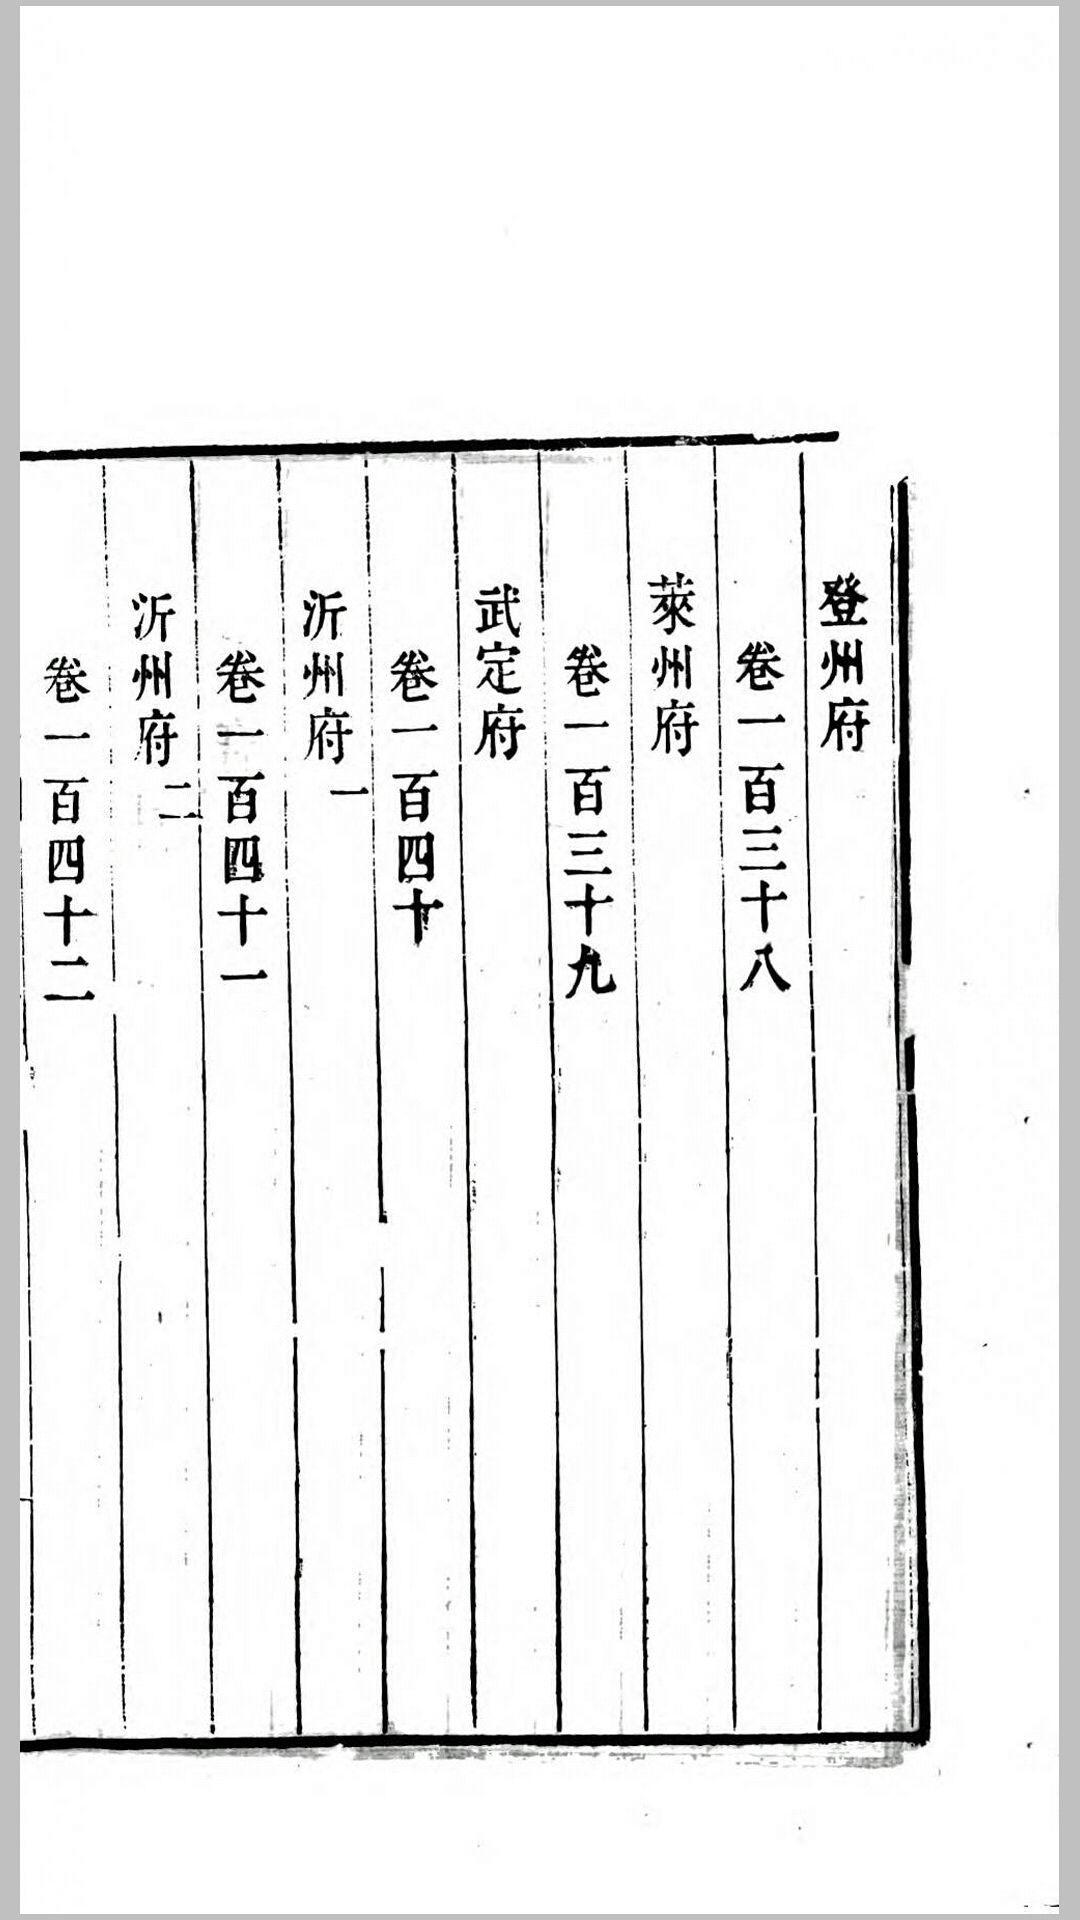 登州府
卷一百三十八
萊州府
卷一百三十九
武定府
卷一百四十
沂州府一
卷一百四十一
沂州府二
卷一百四十二